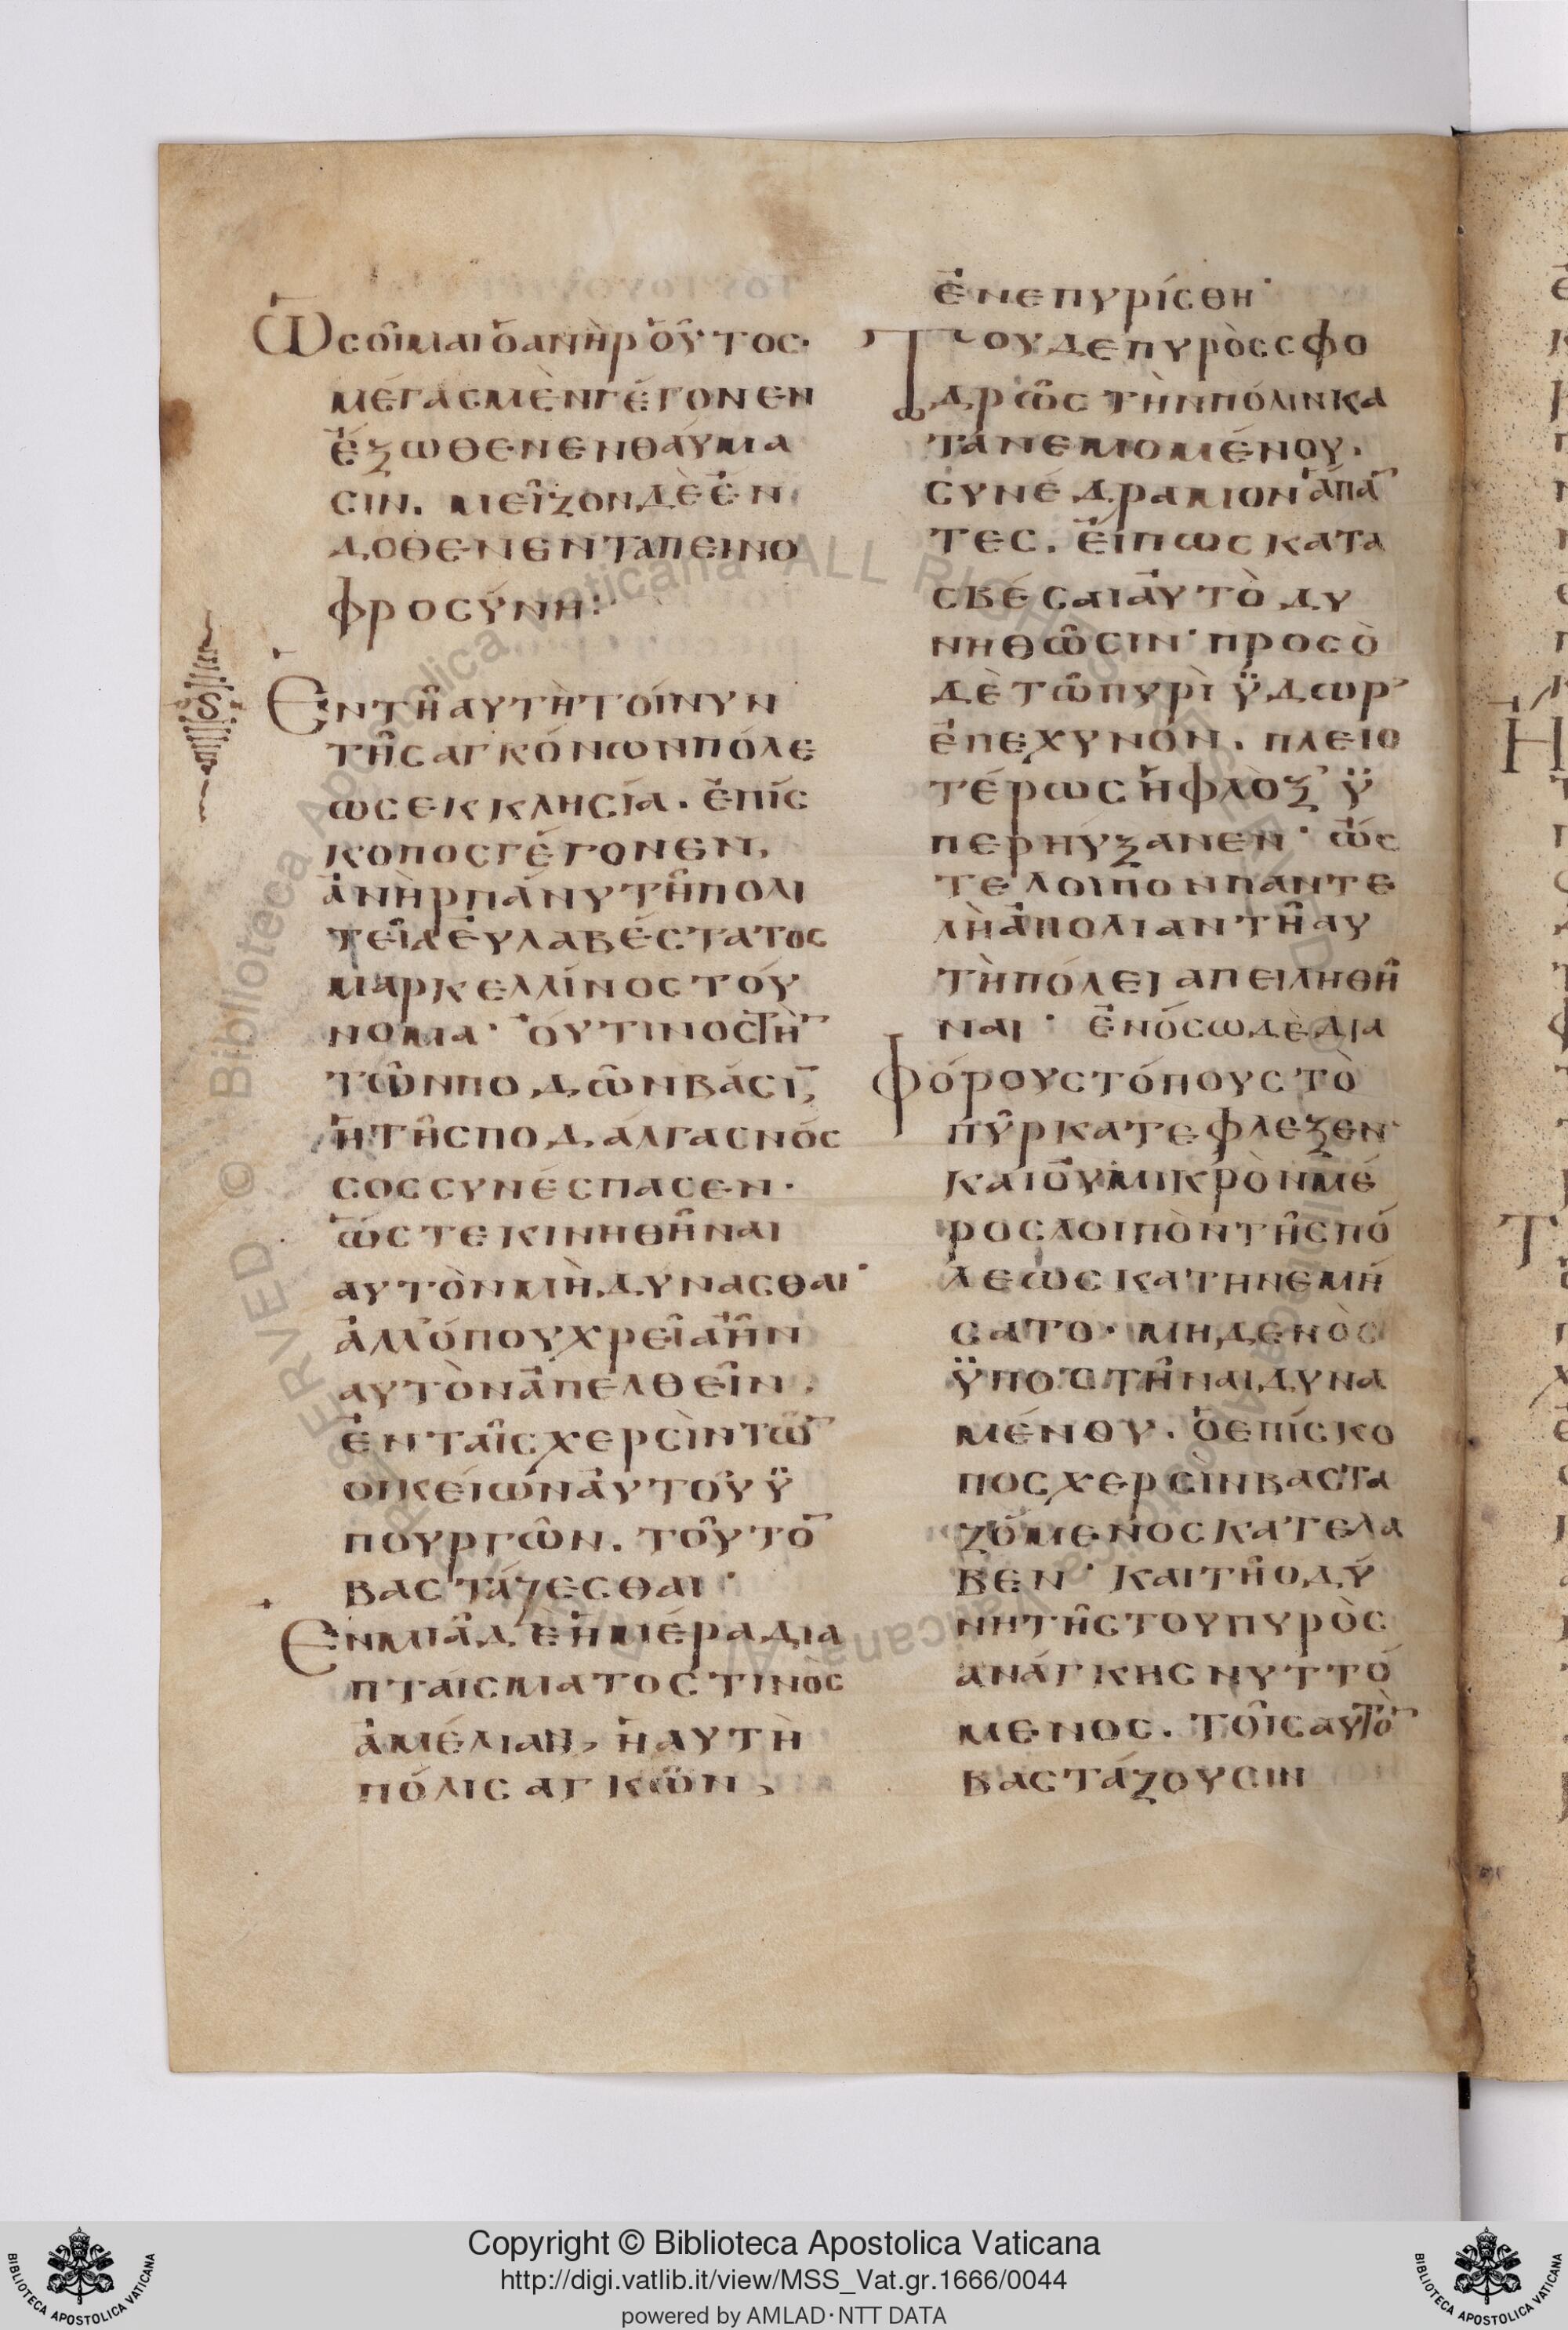 Ὡς οἶμαι ὁ ἀνὴρ οὗτος·
μέγας μὲν γέγονεν
ἔξωθεν ἐν θαύμα
σιν. μεῖζον δὲ ἔν
δοθεν ἐν ταπεινο
φροσύνη:
S
Ἐν τῆ αυτὴ τοίνυν
τῆς αγκόνων πόλε
ως εκκλησία. ἐπίσ
κοπος γέγονεν,
ἀνὴρ πάνυ τῆ πολι
τεῖα ἐυλαβέστατος
μαρκελλίνος τού
νομα· ὅυτινος τὴ̅
τῶν ποδῶν βάσι̅,
ἡ τῆς ποδάλγας νόσ
σος συνέσπασεν·
ὥστε κινηθῆναι
αυτὸν μὴ δύνασθαι·
ἀλλ' ὅπου χρεῖα ἦν
αυτὸν ἀπελθεῖν.
ἐν ταῖς χερσὶν τῶ̅
οικείων ἀυτοῦ ϋ
πουργῶν. τοῦτο̅
βαστάζεσθαι·
Ἐν μιᾶ δε ἡμέρα δια
πταίσματος τινὸς
ἀμέλιαν, ἡ αυτὴ
πόλις αγκὼν,
ἐνεπυρίσθη·
Του δε πυρὸς σφο
δρῶς τὴν πόλιν κα
τανεμομένου.
συνέδραμον ἅπα̅
τες. εἴπως κατα
σβέσαι ἀυτὸ δυ
νηθῶσιν· προς ὸ
δὲ τῶ πυρὶ ϋδωρ
ἐπεχυνόν. πλειο
τέρως ἡ φλὸξ ϋ
περηύξανεν· ὥσ
τε λοιπον παντε
λὴ ἀπολιαν τῆ αυ
τὴ πόλει απειληθῆ
ναι· ἐν όσω δὲ δια
φόρους τόπους τὸ
πῦρ κατεφλεξεν·
και ὀυ μικρὸν μέ
ρος λοιπὸν τῆς πό
λεως κατηνεμή
σατο· μηδενὸς
ϋποστῆναι δυνα
μένου. ὁ επίσκο
πος χερσὶν βαστα
ζόμενος κατελα
βεν· και τῆ οδύ
νη τῆς του πυρὸς
ανάγκης νυττό
μενος. τοῖς αυτὸ̅
βαστάζουσιν
Copyright © Biblioteca Apostolica Vaticana
http://digi.vatlib.it/view/MSS_Vat.gr.1666/0044
powered by AMLAD·NTT DATA